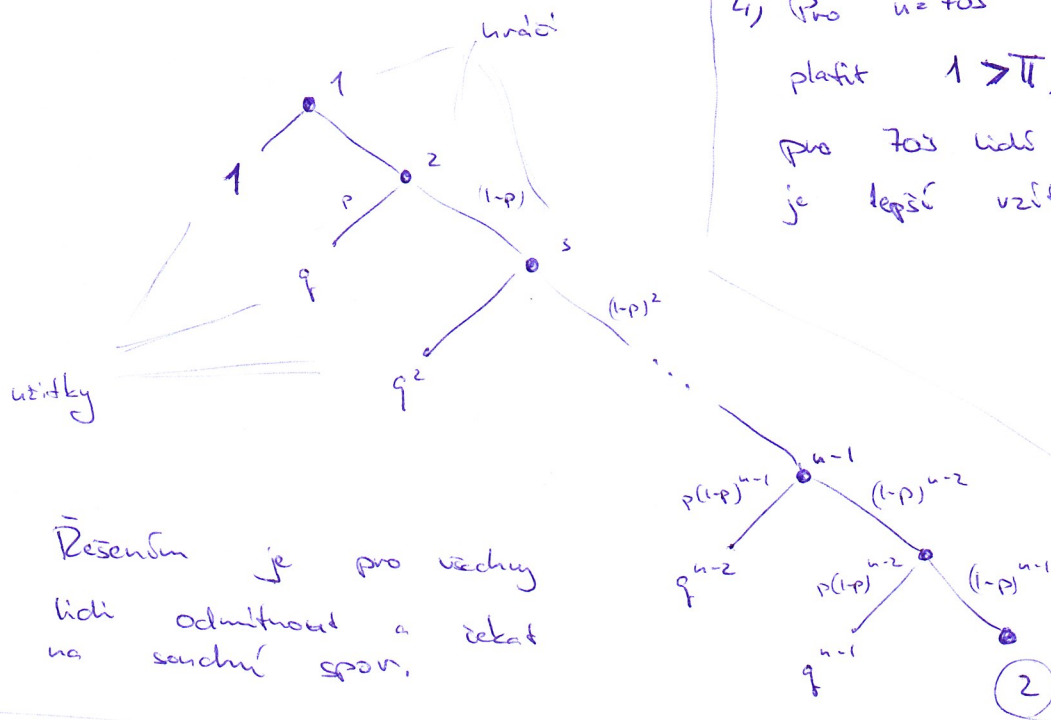 hráči
1
1
2
p
(1-p)
q
3
(1-p)²
q²
užitky
...
n-1
p(1-p)ⁿ⁻¹
(1-p)ⁿ⁻²
qⁿ⁻²
p(1-p)ⁿ⁻²
(1-p)ⁿ⁻¹
qⁿ⁻¹
2
Řešením je pro všechny
lidi odmítnout a čekat
na soudní spor.
4) Pro n=
platit 1 > π
pro lidí
je lepší vzít